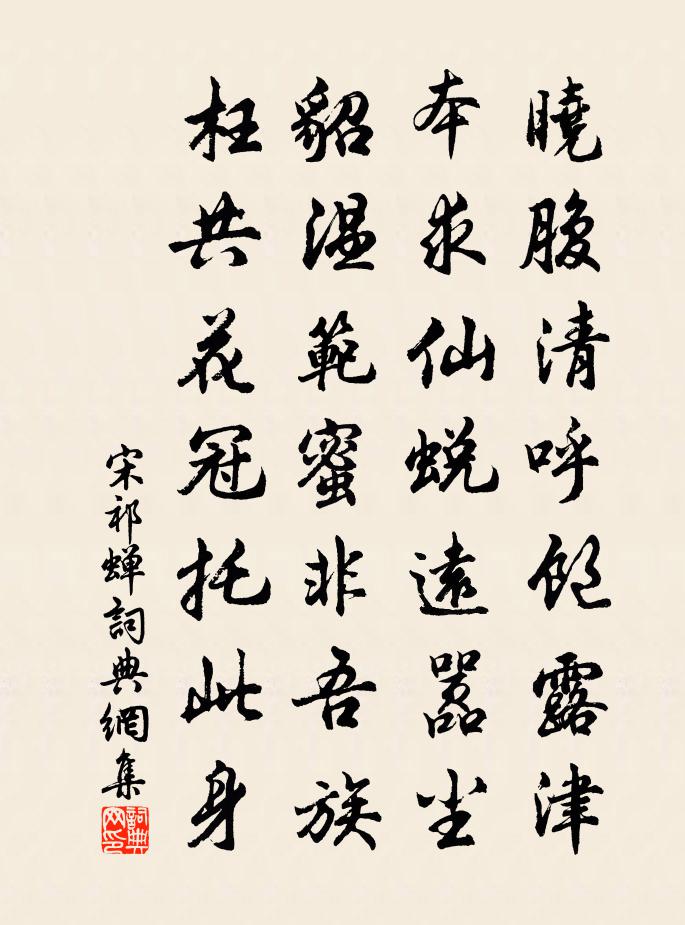 曉腹清呼飽露津
本求仙蛻遠囂尘
貂温範蜜非吾族
枉共花冠托此身
宋祁蝉詞典網集
詞典网印